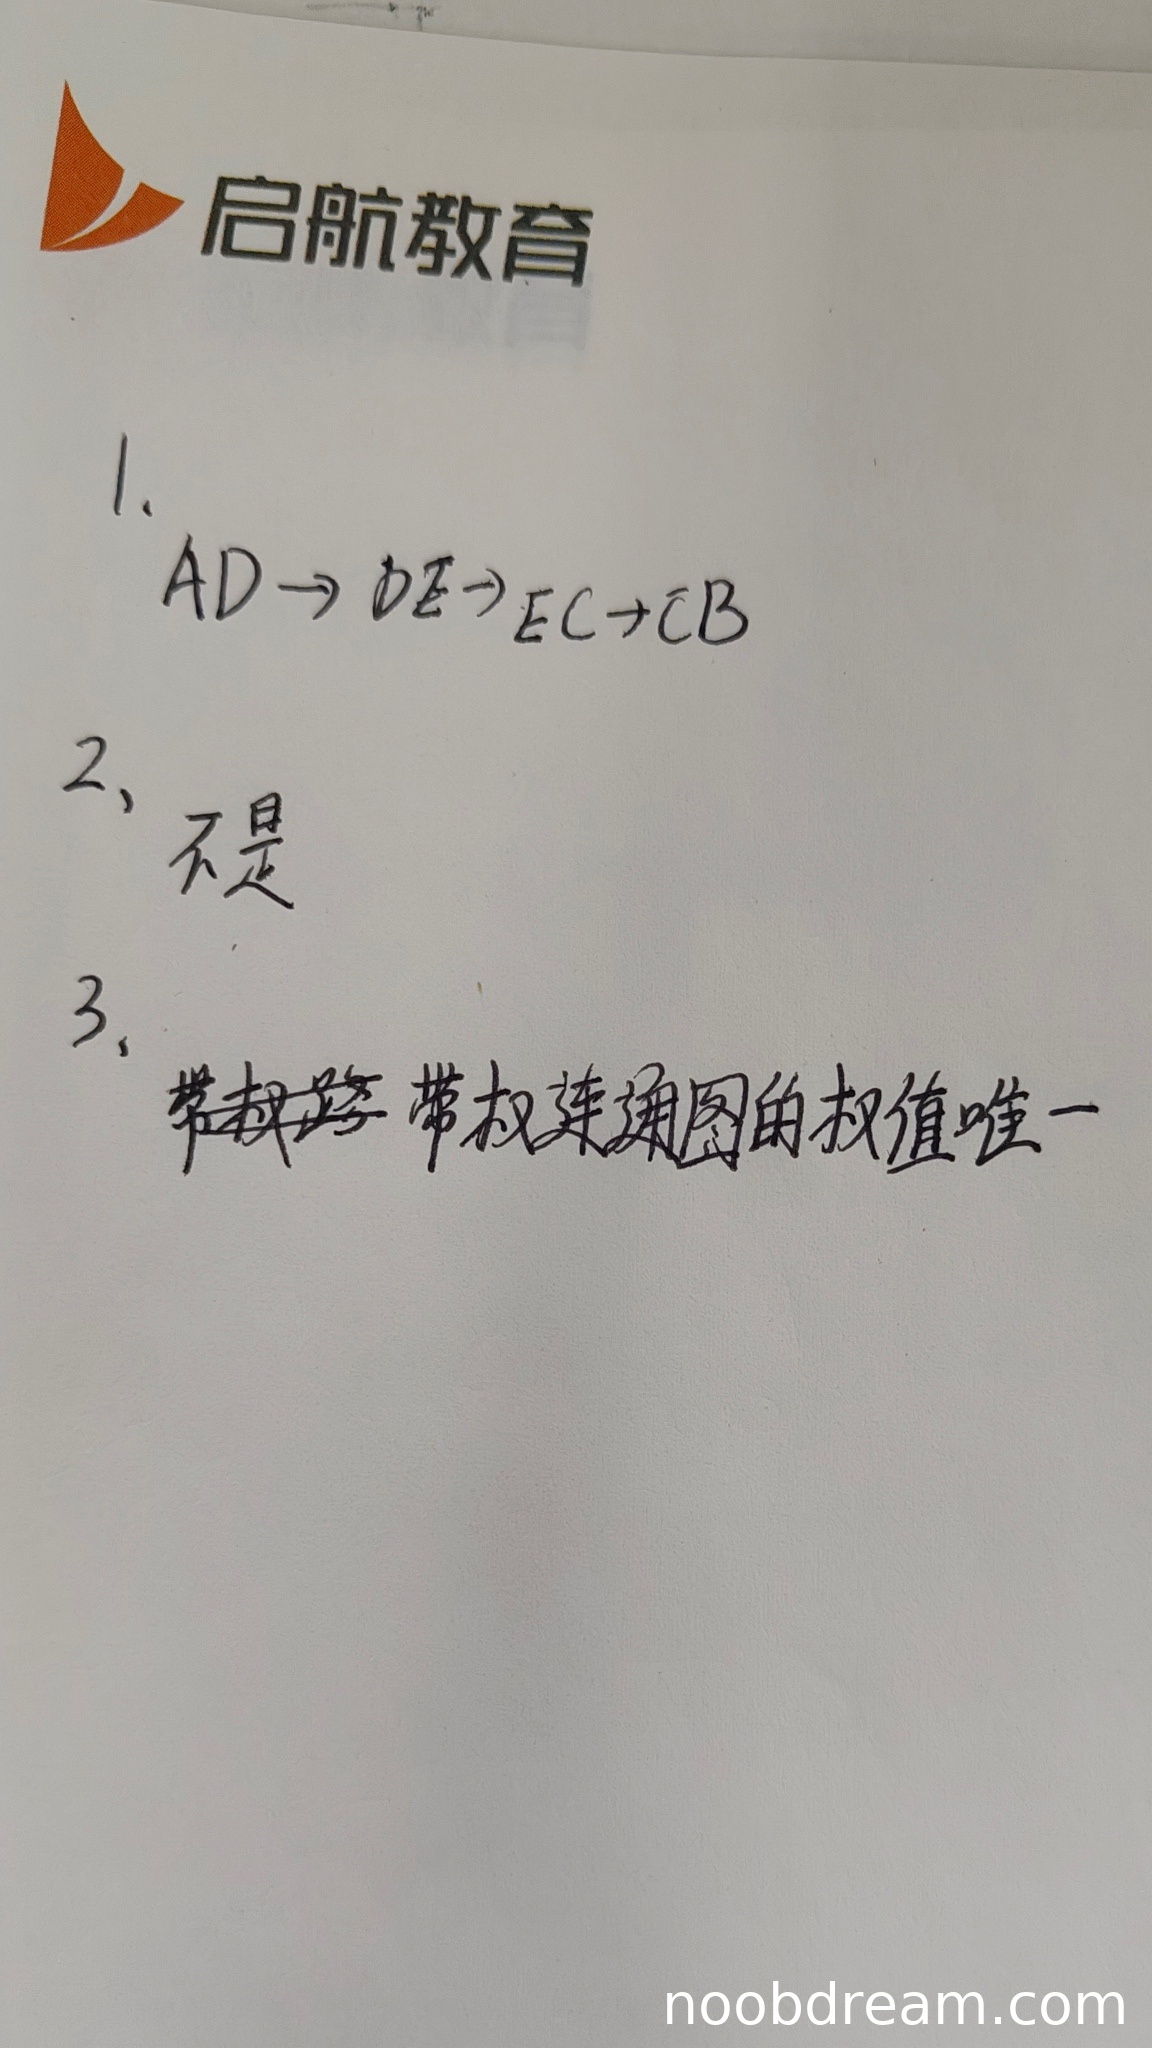 启航教育
1.
AD→DE→EC→CB
2、
不是
3、
带权路 带权连通图的权值唯一
noobdream.com